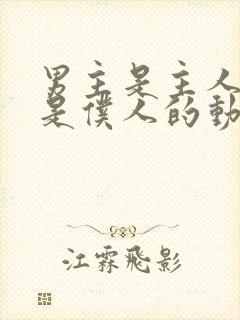 男主是主人
是僕人的動
江霖飛影